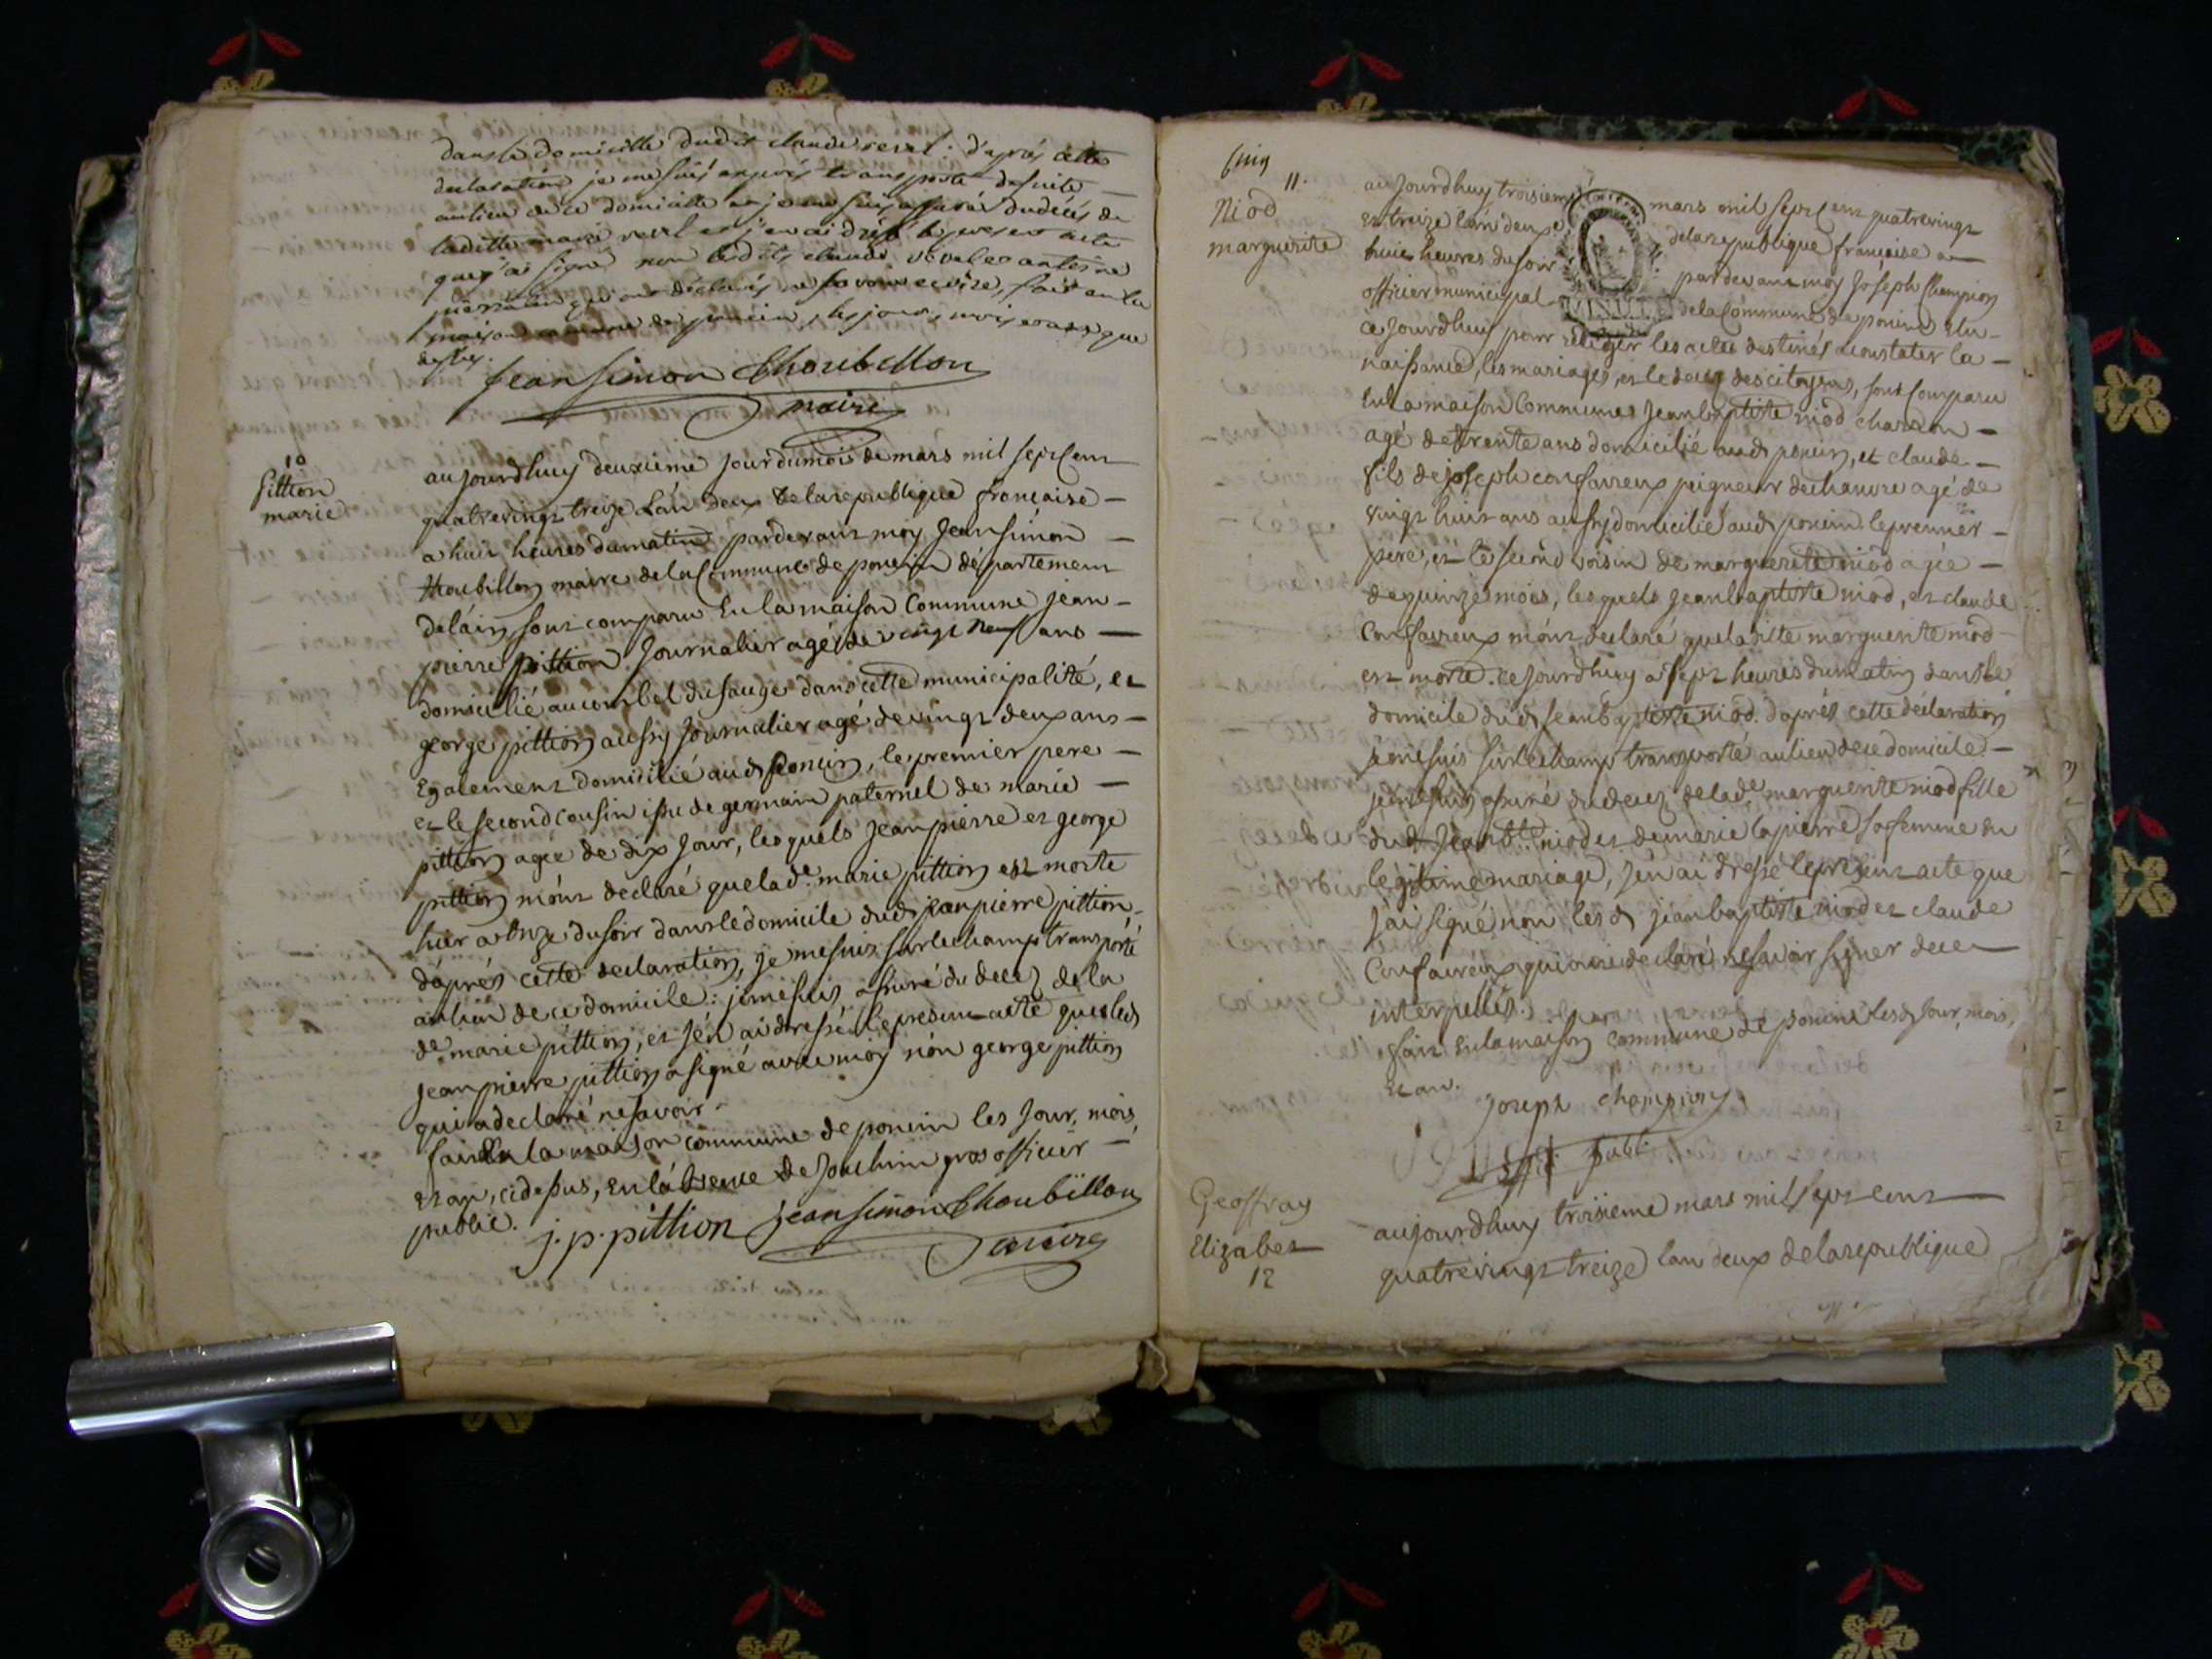 dans le domicille dudit claude revel. d'après cette
declaration je me suis transporté desuite
au lieu de ce domicille et je me suis assuré du décés de
laditte marie revel et j'en ai dressé le present acte
que j'ai signé non lesdits claude revel et antoine
qui ont déclarés ne savoir ecrire, fait en la
maison commune de poncin, les jour, mois et an que
dessus.
Jean Simon Thoubillon
maire
10
pittion
marie
aujourdhuy deuxieme jour du mois de mars mil sept cent
quatrevingt treize L'an deux de la republique francaise
a huit heures du matin pardevant moy Jean Simon
thoubillon maire de la Commune de poncin departement
de l'ain sont comparu En la maison Commune jean
pierre pittion Journalier agé de vingt neuf ans
domicilié au dans cette municipalité, et
george pittion aussy Journalier agé de vingt deux ans
Egalement domicilié aud poncin, le premier pere
et le second Cousin issu de germain paternel de marie
pittion agée de dix Jour, lesquels Jean pierre et george
pittion m'ont declaré que lade marie pittion est morte
hier a onze du soir dans le domicile dud jean pierre pittion
d'aprés cette declaration, je me suis sur le champ transporté
au lieu de ce domicile: je me suis assuré du decez de la
de marie pittion, et j'en ai dressé le present acte que led
Jean pierre pittion a signé avec moy non george pittion
qui a declaré ne savoir.
fait En la maison commune de poncin les Jour, mois,
et an, cidessus, en l'absence de Joachim gros officier
public. j. p. pittion Jean Simon Thoubillon
maire
11.
Niod
marguerite
aujourdhuy troisieme mars mil sept Cent quatrevingt
et treize l'an deux de la republique française a
huit heures du soir pardevant moy Joseph Champion
officier municipal de la Commune de poncin Elu
ce jourdhuy pour rediger les actes destinés a constater la
naissance, les mariages, et le decez des citoyens, sont Comparu
En la maison Commune Jean baptiste niod charron
agé de trente ans domicilié aud poncin, et claude
fils de joseph confavreux peigneur de chanvre agé de
vingt huit ans aussy domicilié aud poncin. le premier
pere, et le second voisin de marguerite niod agée
de quinze mois, lesquels jean baptiste niod, et claude
Confavreux m'ont declaré que la dite marguerite niod
est morte. ce jourdhuy a sept heures du matin dans le
domicile dud Jean baptiste niod. d'aprés cette declaration
je me suis sur le champ transporté au lieu de ce domicile
je me suis assuré du decez de lade marguerite niod fille
dud Jean Bte niod et de marie lapierre sa femme en
legitime mariage, j'en ai dressé le present acte que
j'ai signé non lesd jean baptiste niod et claude
Confavreux qui ont declaré ne savoir signer de ce
interpellés.
fait en la maison commune de poncin lesd jour, mois,
et an.
joseph champion
off. publ.
Geoffray
Elizabet
12
aujourdhuy troisieme mars mil sept cent
quatrevingt treize lan deux de la republique